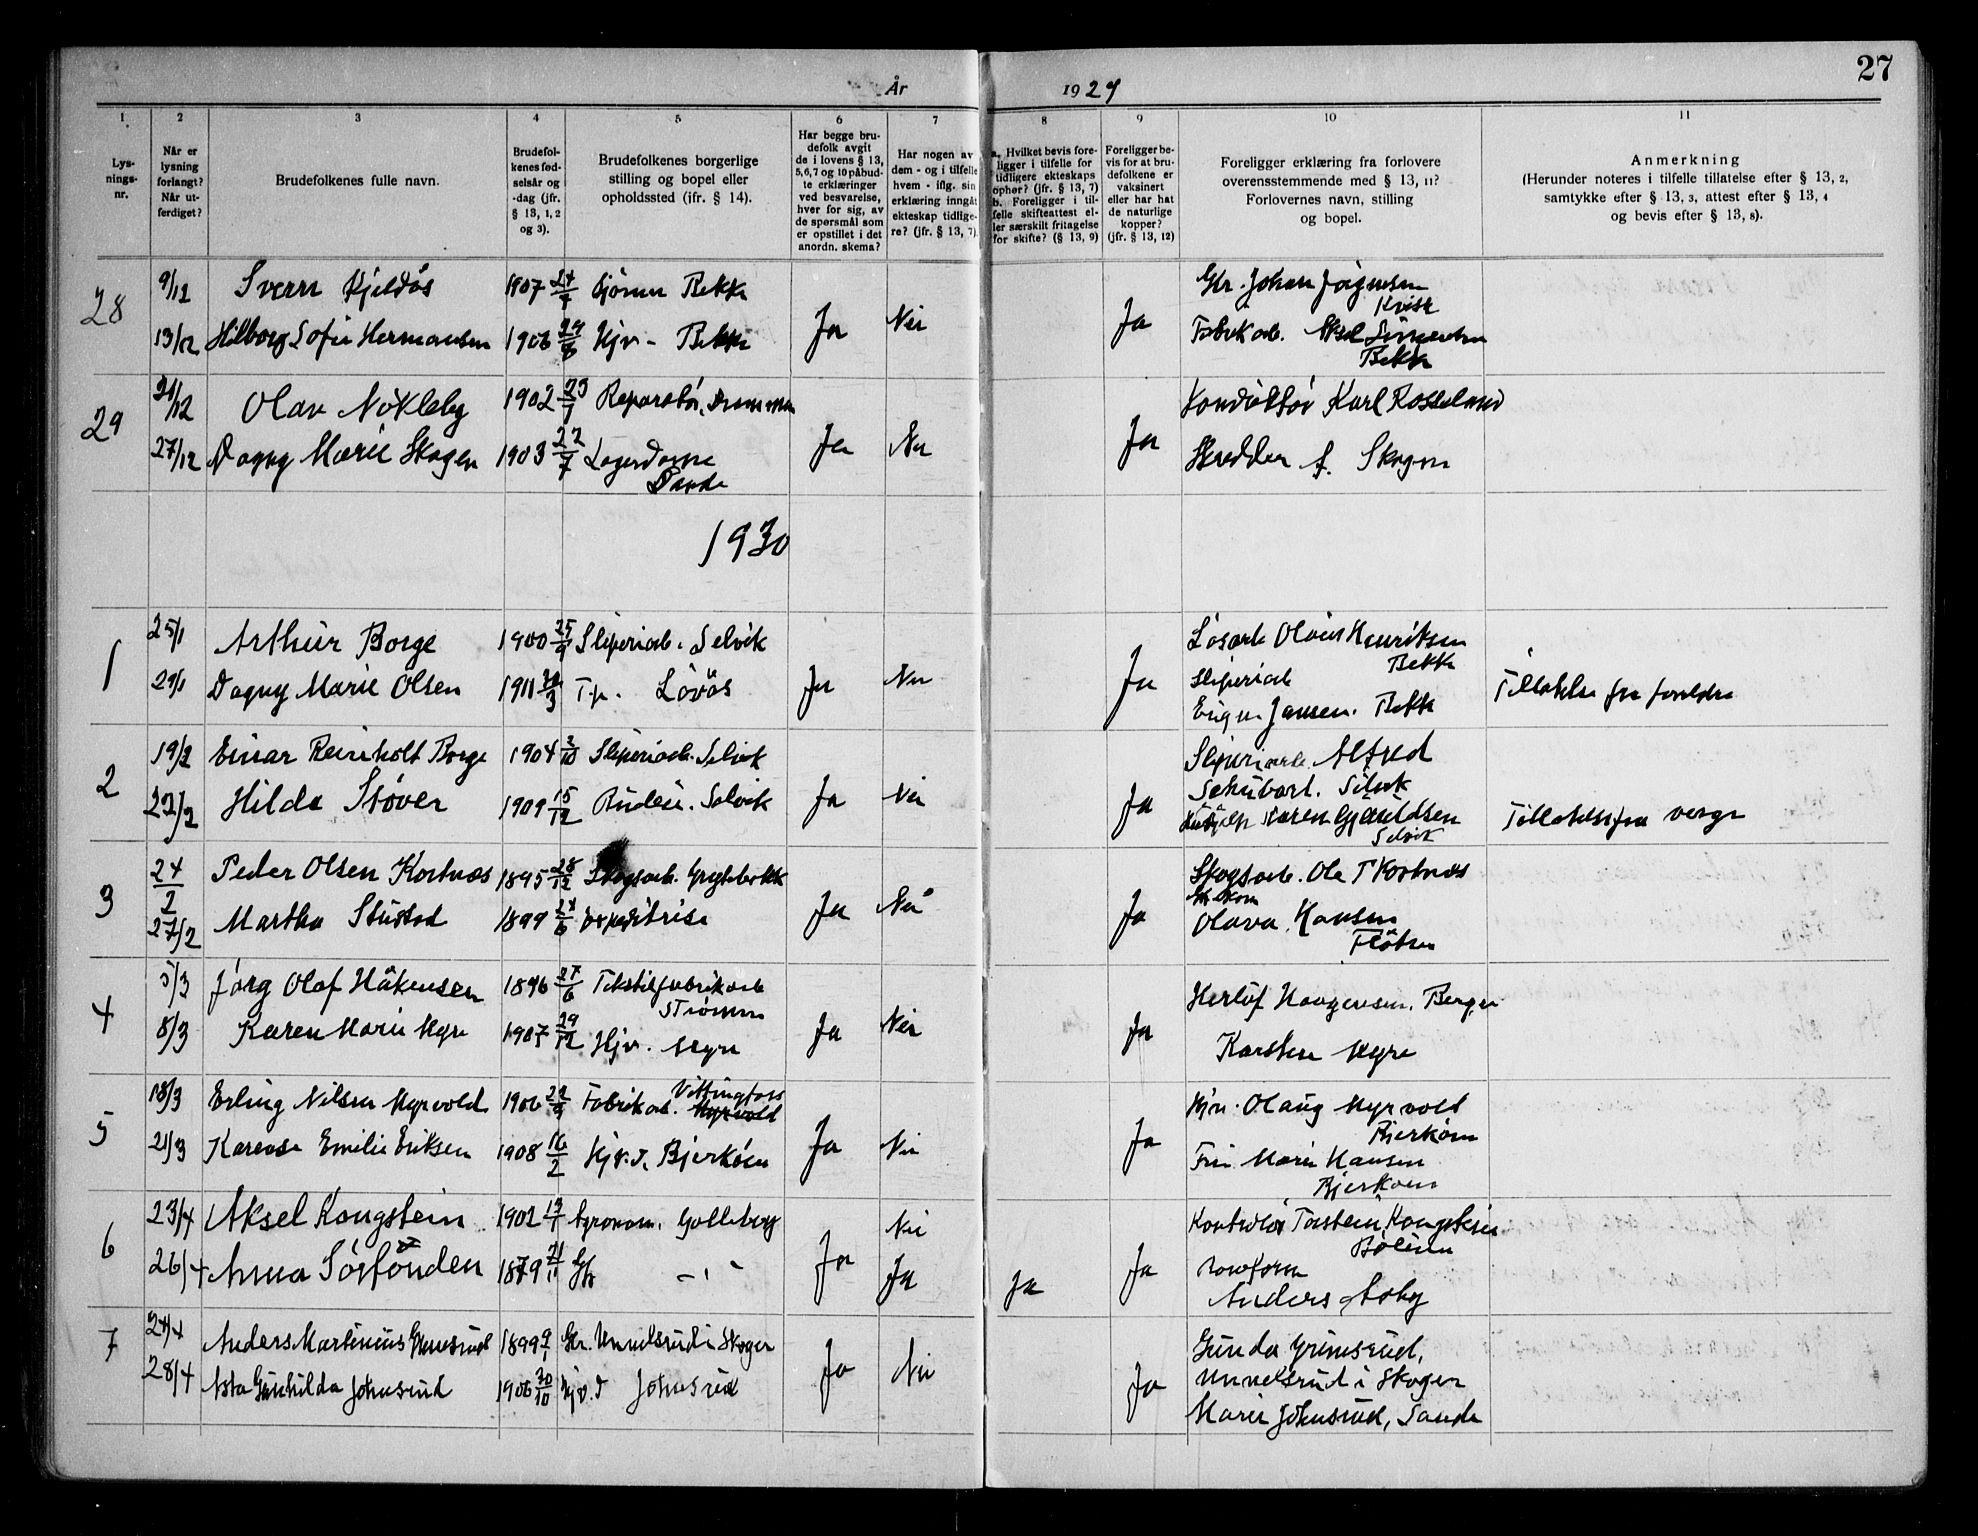 27
År 1929
1.
Lys-
nings-
nr.
2
Når er
lysning
forlangt?
Når ut-
ferdiget?
3
Brudefolkenes fulle navn.
4
Brudefol-
kenes fød-
selsår og
-dag (jfr.
§ 13, 1, 2
og 3).
5
Brudefolkenes borgerlige
stilling og bopel eller
opholdssted (ifr. § 14).
6
Har begge bru-
defolk avgit
de i lovens § 13,
5,6,7 og 10 påbud-
te erklæringer
ved besvarelse,
hver for sig, av
de spørsmål som
er opstillet i det
anordn. skema?
7
Har nogen av
dem - og i tilfelle
hvem - iflg. sin
erklæring inngått
ekteskap tidlige-
re? (jfr. § 13, 7).
8
a. Hvilket bevis fore-
ligger i tilfelle for
tidligere ekteskaps
ophør? (jfr. § 13, 7)
b. Foreligger i til-
felle skifteattest el-
ler særskilt fritagelse
for skifte? (§ 13, 9)
9
Foreligger be-
vis for at bru-
defolkene er
vaksinert
eller har hat
de naturlige
kopper?
(jfr. § 13, 12)
10
Foreligger erklæring fra forlovere
overensstemmende med § 13, 11?
Forlovernes navn, stilling
og bopel.
11
Anmerkning
(Herunder noteres i tilfelle tillatelse efter § 13, 2,
samtykke efter § 13, 3, attest efter § 13, 4
og bevis efter § 13, 8).
28 9/12 Sverre Kjeldås 1907 Bekk Ja Nei Ja Gbr. Johan Jørgensen
Kvisk
13/12 Hilborg Sofie Hermansen 1906 Hjv - Bekk Fabrikarb.
Bekk
29 21/12 Olav Nøkleby 1902 23/1 Reparatør, Drammen Ja Nei Ja Konduktør Karl Rosseland
27/12 Dagny Marie Skogen 1903 22/7 Lagerdame Skredder Skogen
Sande
1930
1 25/1 Arthur Borge 1900 25/9 Sliperiarb. Selvik Ja Nei Ja Løsarb Olaus Henriksen
Bekk
29/1 Dagny Marie Olsen 1911 Løvås Sliperiarb Tillatelse fra foreldre
Eugen Jansen. Bekk
2 19/2 Einar Reinholt Borge 1904 2/10 Sliperiarb. Selvik Ja Nei Ja Sliperiarb. Alfred
Schubart. Selvik
22/2 Hilda Støver 1909 15/12 Budeie. Selvik Karen Gjerildsen Tillatelse fra verge
Selvik
3 24/2 Peder Olsen Kortnæs 1895 28/12 Skogsarb. Grytebekk Ja Nei Ja Skogsarb. Ole T Kortnæs
27/2 Martha Stustad 1899 expeditrise Olava Hansen
4 5/3 Jørg Olaf Håkensen 1896 27/6 Tekstilfabrikarb Ja Nei Ja Herlof Haagensen. Berger
Strømm
8/3 Karen Marie Myre 1907 29/12 Hjv. Myre Karsten Myre
5 18/3 Erling Nilsen Myrvold 1906 Fabrikarb. Vittingfoss Myrvold Ja Nei Ja Hjv. Olaug Myrvold
Bjerkøen
21/3 Karense Emilie Eriksen 1908 16/2 Hjv.d. Bjerkøen Fru Marie Hansen
Bjerkøen
6 23/4 Aksel Kongstein 1902 13/1 Agronom. Galleberg Ja Nei Ja Kontrollør Torstein Kongstein
26/4 Anna Sørtønden 1879 21/11 Gbr - " - Ja Ja
Anders Aaby
7 24/4 Anders Martinius Grimsrud 1899 9/1 Gbr. Unnelsrud i Skoger Ja Nei Ja Gunda Grimsrud,
Unnelsrud i Skoger
28/4 Asta Gunhilda Johnsrud 1906 30/10 Hjv. d Johnsrud Marie Johnsrud, Sande